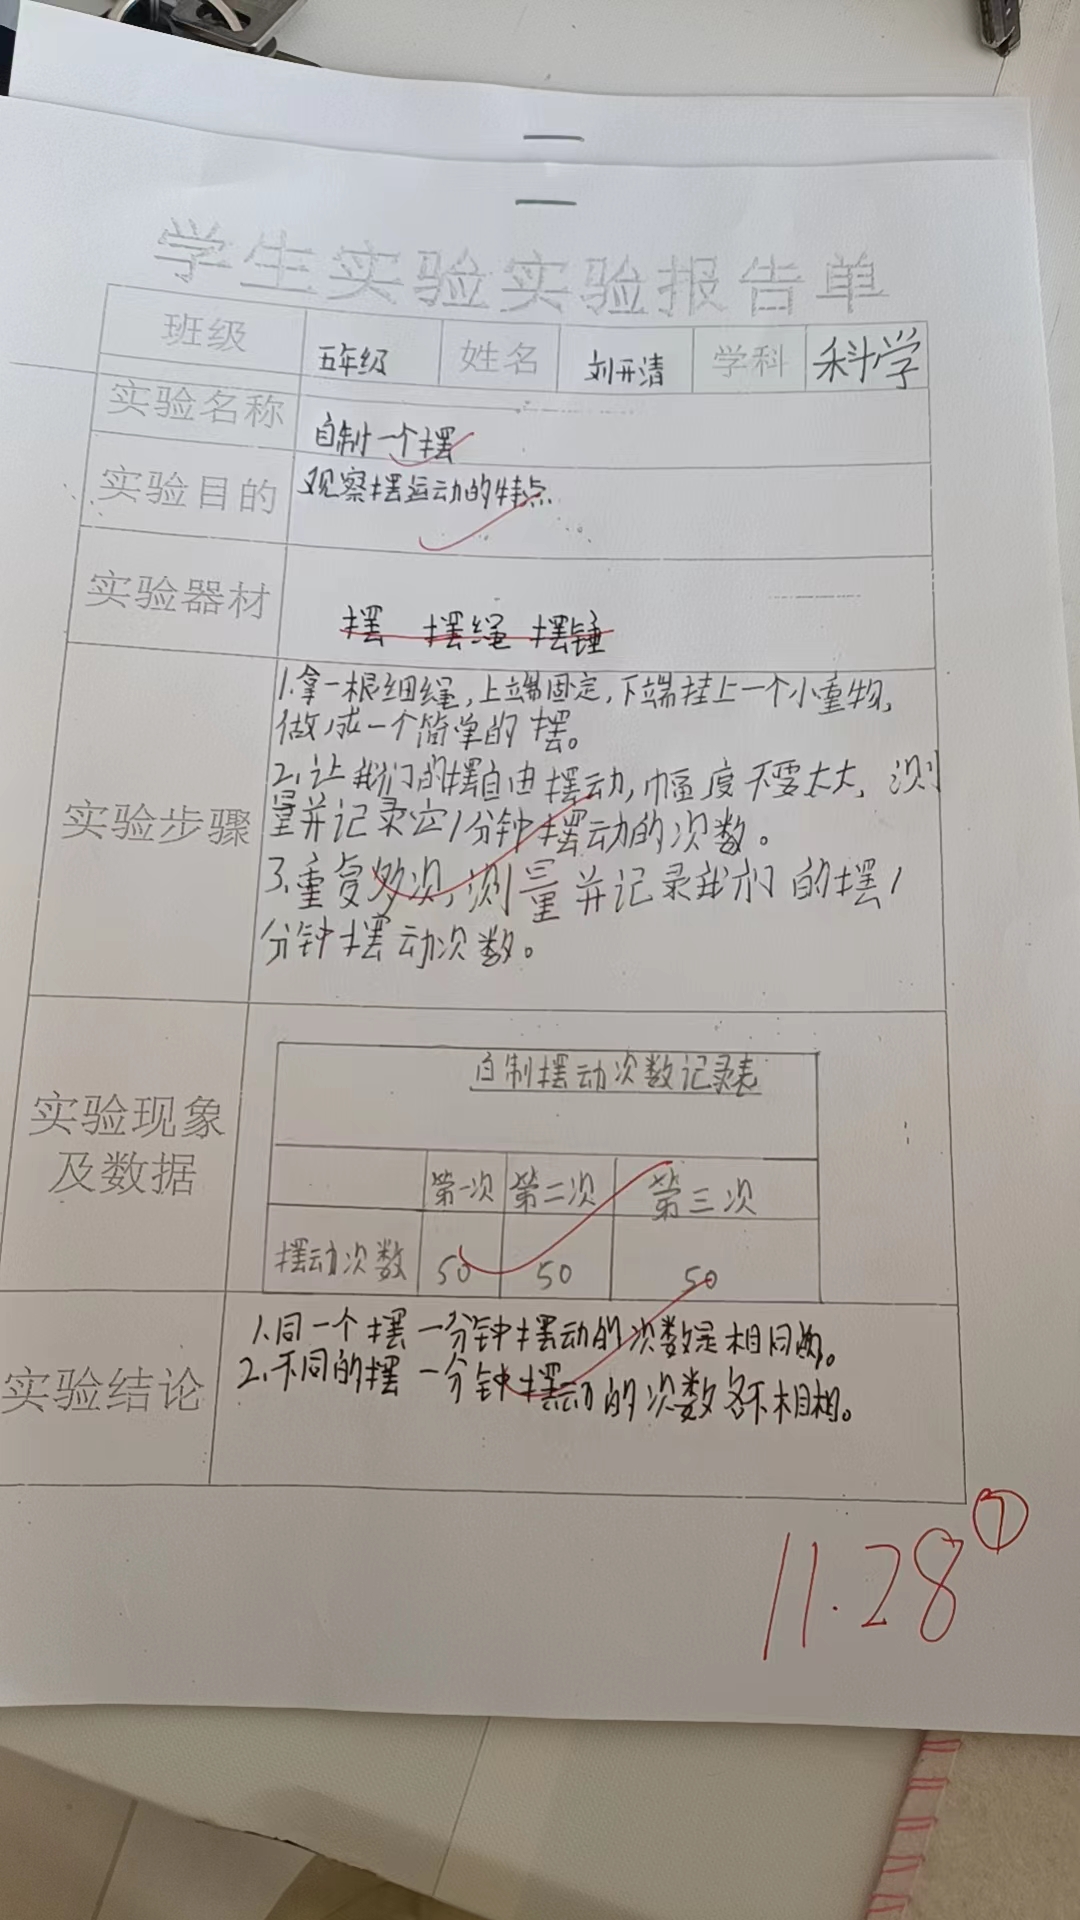 学生实验实验报告单
班级 五年级 姓名 刘开清 学科 科学
实验名称 自制一个摆
实验目的 观察摆运动的特点.
实验器材 摆 摆绳 摆锤
实验步骤
1.拿一根细绳,上端固定,下端挂上一个小重物,
做成一个简单的摆。
2.让我们的摆自由摆动,幅度不要太大,测
量并记录它1分钟摆动的次数。
3.重复多次,测量并记录我们的摆1
分钟摆动次数。
实验现象
及数据
自制摆动次数记录表
第一次 第二次 第三次
摆动次数 50 50 50
实验结论
1.同一个摆一分钟摆动的次数是相同的。
2.不同的摆一分钟摆动的次数各不相相。
11.28 ⑦